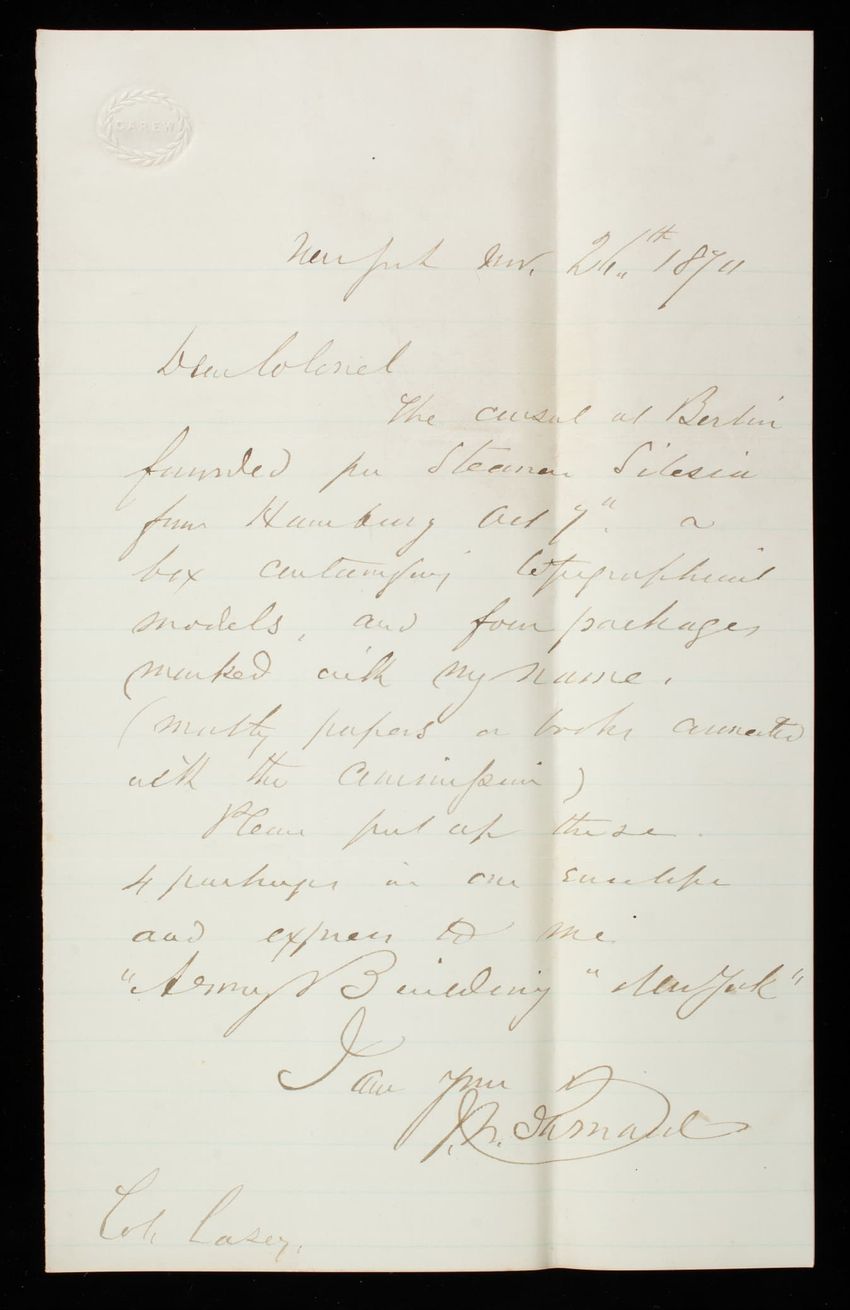 CAREW
New York Nov. 26th 1870
Dear Colonel
The consul at Berlin
forwarded per Steamer Silesia
from Hamburg Oct 7" a
box containing topographical
models, and four packages
marked with my name.
(mostly papers or books connected
with the Commission)
Please put up these
4 packages in one envelope
and express to me
"Army Building" New York"
I am yours
J. G. Barnard
Col. Casey,